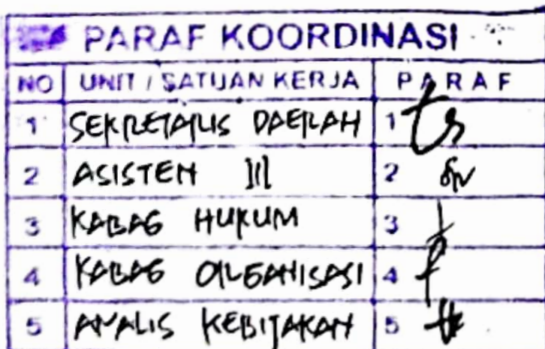 PARAF KOORDINASI
NO UNIT / SATUAN KERJA PARAF
1 SEKRETARIS DAERAH 1
2 ASISTEN III 2
3 KABAG HUKUM 3
4 KABAG ORGANISASI 4
5 ANALIS KEBIJAKAN 5